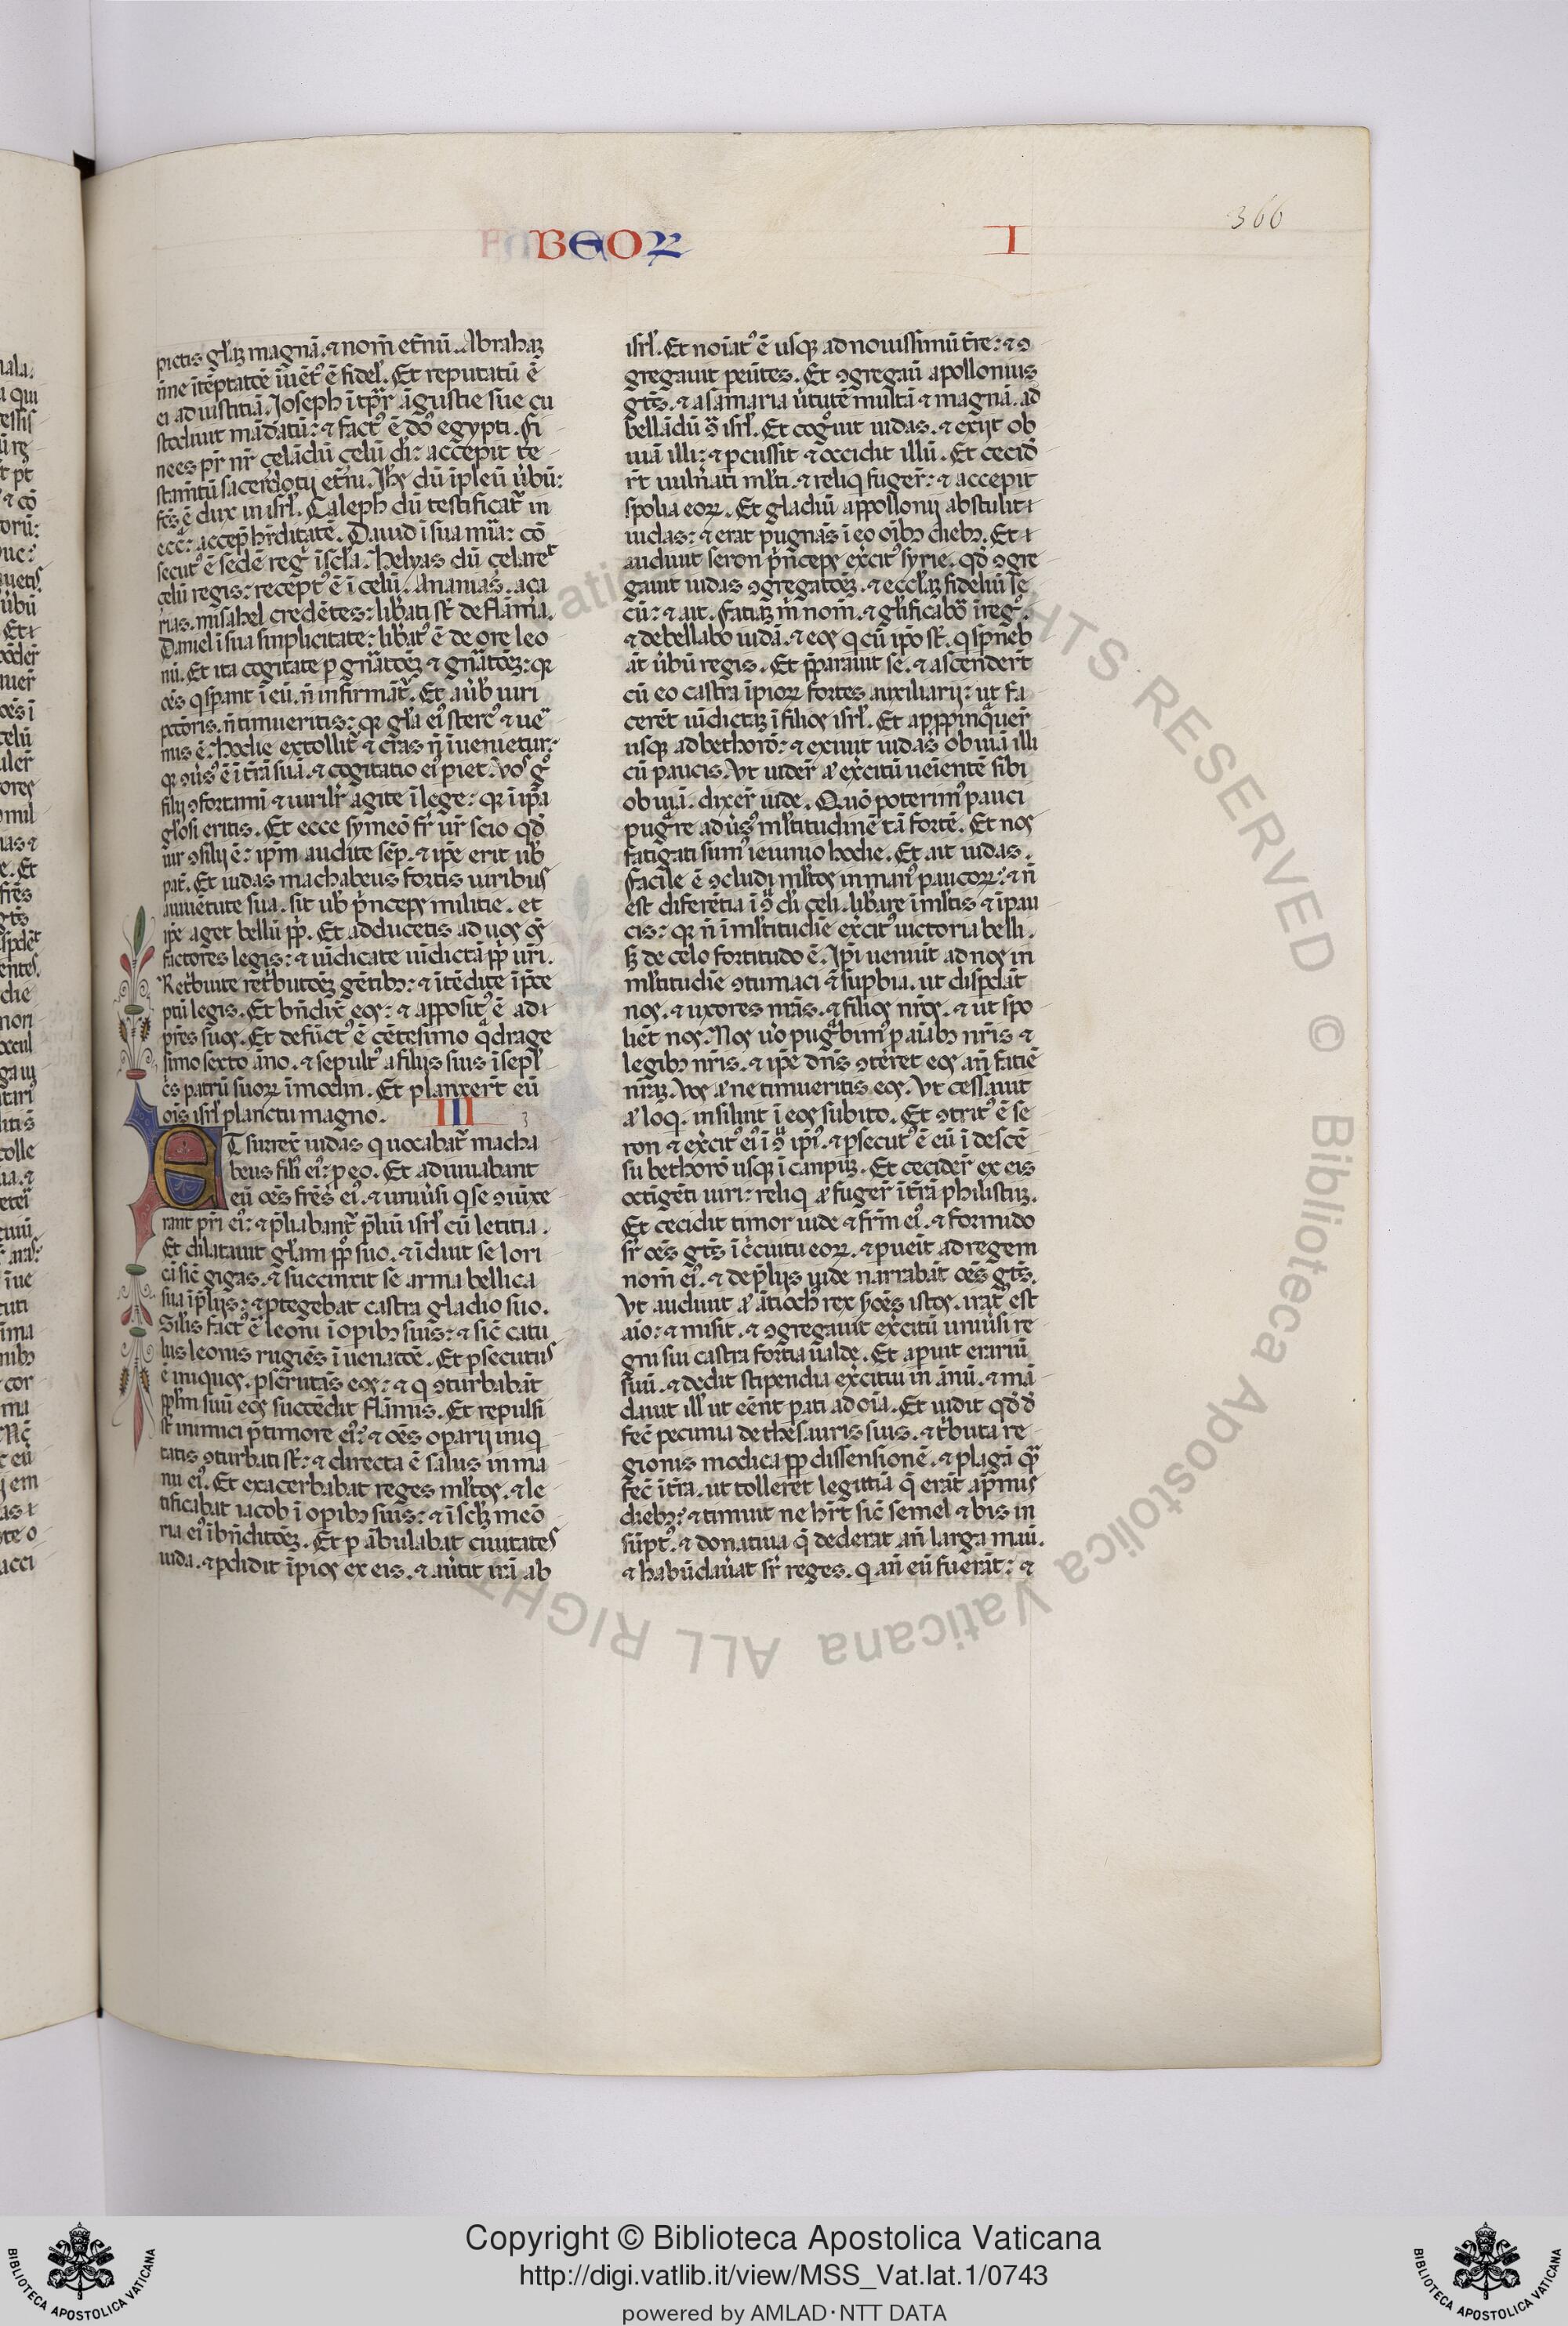 BEOꝜ
I
366
pietis gl'aꝫ magnā. ⁊ nom̄ et̄nū. Abrahaꝫ
n̄ne ītēptatōē īuēt᾽ ē fidel'. Et reputatū ē
ei ad iustitiā. Joseph ī tp̄r āgustie sue cu
stodiuit mādatū: ⁊ fact᾽ ē dn̄s egypti. fi
nees pr̄ nr̄ çelādū çelū di: accepit te
stam̄tū sacerdotij et̄ni. Jhs dū īpleū ūbū:
fcs ē dux in isrl'. Caleph dū testificat̄ in
eccā: accep̄ hr̄ditatē. Dauid ī sua mīa: cō
secut᾽ ē sedē regī ī scl'a. helyas dū çelaret
çelū regis: recept᾽ ē ī celū. Ananias. aça
rias. misahel credētes: lib̄ati st̄ de flāma.
Daniel ī sua simplicitate: lib̄at᾽ ē de ore leo
nū. Et ita cogitate ꝑ gn̄atōꝫ ⁊ gn̄atōꝫ: qꝛ
oēs q sꝑant ī eū. n̄ infirmāt̄. Et a ūb' uiri
pctōris. n̄ timueritis: qꝛ gl'a ei᾽ sterc᾽ ⁊ ue
mis ē: hodie extollit̄ ⁊ cras n̄ īuenietur:
qꝛ ꝯūs᾽ ē ī t̄rā suā. ⁊ cogitatio ei᾽ piet. Vos gͦ
filij ꝯfortami ⁊ uirilr̄ agite ī lege: qꝛ ī ip̄a
gl'osi eritis. Et ecce symeō fr̄ ur̄ scio qd̄
uir ꝯsilij ē: ip̄m audite sēp. ⁊ ip̄e erit ub'
pat̄. Et iudas machabeus fortis uiribus
a iuuētute sua. sit ub' p̄nceps militie. et
ip̄e aget bellū pp̄. Et adducetis ad uos oēs
factores legis: ⁊ uīdicate uīdictā pp̄ ur̄i.
Ret̄buite ret̄butōeꝫ gētibꝫ: ⁊ ītēdite ī p̄ce
ptū legis. Et bn̄dix̄ eos: ⁊ apposit᾽ ē ad
pr̄es suos. Et defūct᾽ ē cētesimo q̄drage
simo sexto āno. ⁊ sepult᾽ a filijs suis ī sepl'
c̄s patrū suoꝝ ī modin. Et planxer̄t eū
oīs isrl' planctu magno.
III
ET surrex̄ iudas q uocabat̄ macha
beus fili᾽ ei᾽: ꝑ eo. Et adiuuabant
eū oēs fr̄es ei᾽. ⁊ uniūsi q se ꝯiūxe
rant pr̄i ei᾽: ⁊ p̄liabant̄ p̄liū isrl' cū letitia.
Et dilatauit gl'am pp̄o suo. ⁊ īduit se lori
cā sic̄ gigas. ⁊ succinxit se arma bellica
sua ī p̄lijs: ⁊ ꝓtegebat castra gladio suo.
Silis fact᾽ ē leoni ī opibꝫ suis: ⁊ sic̄ catu
lus leonis rugiēs ī uenatōe. Et ꝑsecutus
ē iniquos. ꝑscrutās eos: ⁊ q ꝯturbabāt
pp̄lm suū eos succēdit flāmis. Et repulsi
st̄ inimici p̄ timore ei᾽: ⁊ oēs oparij iniq
tatis ꝯturbati st̄: ⁊ directa ē salus in ma
nu ei᾽. Et exacerbabat reges ml'tos. ⁊ le
tificabat iacob ī opibꝫ suis: ⁊ ī scl'ꝫ meō
ria ei᾽ ī bn̄dictōeꝫ. Et ꝑābulabat ciuitates
iuda. ⁊ ꝑdidit īpios ex eis. ⁊ aūtit irā ab
isrl'. Et noīat᾽ ē usqꝫ ad nouissimū t̄re: ⁊ ꝯ
gregauit peūtes. Et ꝯgregaū apollonius
gt̄s. ⁊ a samaria ūtutē multā ⁊ magnā. ad
bellādū ꝯ̄ isrl'. Et cogͦuit iudas. ⁊ exijt ob
uiā illi: ⁊ ꝑcussit ⁊ occidit illū. Et cecid̄
r̄t uuln̄ati ml'ti. ⁊ reliq fuger̄: ⁊ accepit
spolia eoꝝ. Et gladiū appollonij abstulit
iudas: ⁊ erat pugnās ī eo oībꝫ diebꝫ. Et
audiuit seron p̄nceps ex̄cit᾽ syrie. qd̄ ꝯgre
gauit iudas ꝯgregatōeꝫ. ⁊ eccl'aꝫ fideliū se
cū: ⁊ ait. faciaꝫ m̄ nom̄. ⁊ gl'ificabor ī regͦ.
⁊ debellabo iudā. ⁊ eos q cū ip̄o st̄. q sp̄neb
āt ūbū regis. Et p̄parauit se. ⁊ ascender̄t
cū eo castra īpioꝝ fortes auxiliarij: ut fa
cerēt uīdictaꝫ ī filios isrl'. Et appropinq̄uer̄
usqꝫ ad bethorō: ⁊ exiuit iudas obuiā illi
cū paucis. Vt uider̄ aͭ ex̄citū ueīentē sibi
obuiā. dixer̄ iude. Quō poterim᾽ pauci
pugͣre adūs᾽ ml'titudinē tā fortē. Et nos
fatigati sum᾽ ieiunio hodie. Et ait iudas.
facile ē ꝯcludi ml'tos in man᾽ paucoꝝ: ⁊ n̄
est diferētia ī ꝯ̄ di celi. lib̄are ī ml'tis ⁊ ī pau
cis: qꝛ n̄ ī ml'titudīe ex̄cit᾽ uictoria belli.
sꝫ de celo fortitudo ē. Jp̄i ueniūt ad nos in
ml'titudīe ꝯtumaci ⁊ suꝑbia. ut disꝑdāt
nos. ⁊ uxores nr̄as. ⁊ filios nr̄os. ⁊ ut spo
liēt nos. Nos ū̊o pugͣbim᾽ ꝑ aīabꝫ nr̄is ⁊
legibꝫ nr̄is. ⁊ ip̄e dn̄s ꝯt̄eret eos an̄ fatiē
nr̄aꝫ. Vos aͭ ne timueritis eos. Vt cessauit
aͭ loqͥ. insiluit ī eos subito. Et ꝯtrit᾽ ē se
ron ⁊ ex̄cit᾽ ei᾽ ī ꝯ̄ ip̄i᾽. ⁊ ꝑsecut᾽ ē eū ī descē
su bethorō usqꝫ ī canpuꝫ. Et cecider̄ ex eis
octīgēti uiri: reliq aͭ fuger̄ ī t̄rā philistiꝫ.
Et cecidit timor iude ⁊ fr̄m ei᾽. ⁊ formido
sr̄ oēs gt̄s ī c̄cuitu eoꝝ. ⁊ ꝑueīt ad regem
nom̄ ei᾽. ⁊ de p̄lijs iude narrabāt oēs gt̄s.
Vt audiuit aͭ ātioch᾽ rex s̄mōēs istos. irat᾽ est
aīo: ⁊ misit. ⁊ ꝯgregauit ex̄citū uniūsi re
gni sui castra fortia ualde. Et aꝑuit erariū
suū. ⁊ dedit stipendia ex̄citui in ānū. ⁊ mā
dauit ill' ut eēnt ꝑati ad oīa. Et uidit qd̄ d̄
fec̄ pecunia de thesauris suis. ⁊ t̄buta re
gionis modica pp̄ dissensionē. ⁊ plagā quͣ
fec̄ ī t̄ra. ut tolleret legittīa q̄ erāt a p̄mis
diebꝫ: ⁊ timuit ne hr̄et sic̄ semel ⁊ bis in
sūpt᾽. ⁊ donatiua q̄ dederat an̄ larga manū.
⁊ habūdaūat sr̄ reges. q an̄ eū fuerāt: ⁊
Copyright © Biblioteca Apostolica Vaticana
http://digi.vatlib.it/view/MSS_Vat.lat.1/0743
powered by AMLAD·NTT DATA
BIBLIOTECA APOSTOLICA VATICANA
BIBLIOTECA APOSTOLICA VATICANA